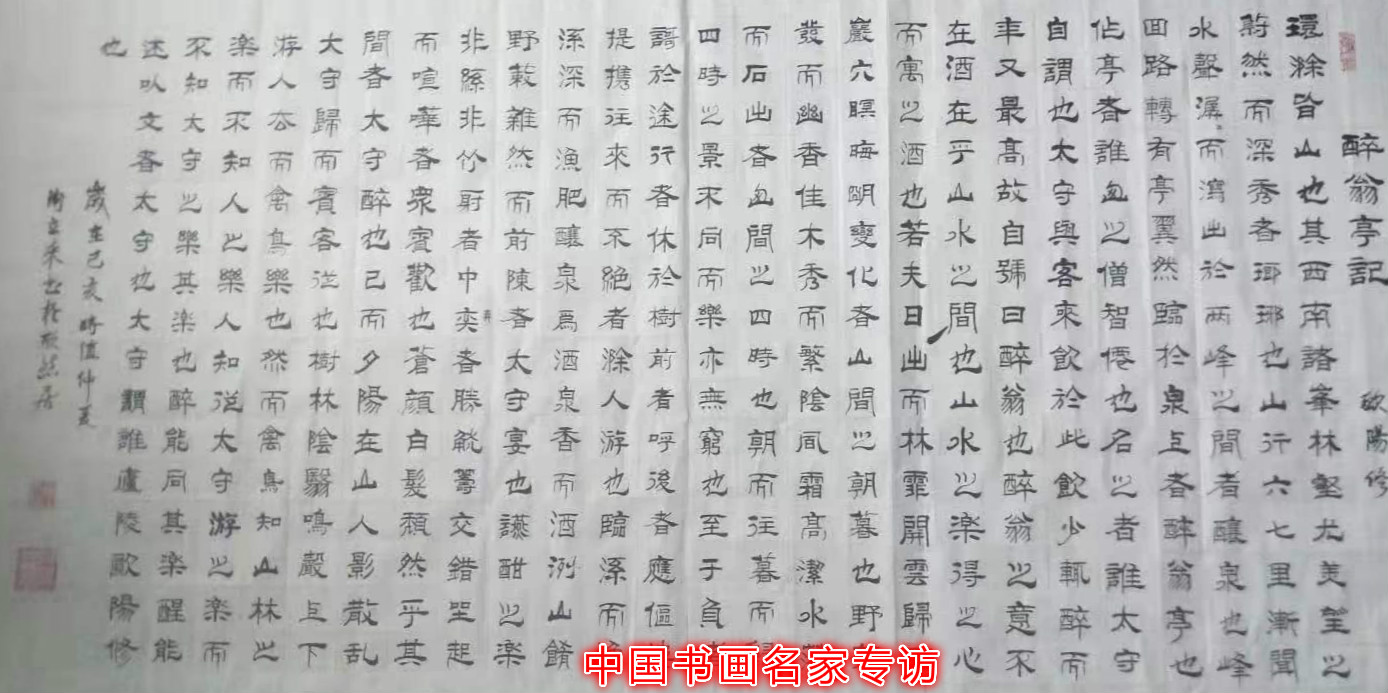 醉翁亭記
欧陽修
環滁皆山也其西南諸峯林壑尤美望之
蔚然而深秀者瑯琊也山行六七里漸聞
水聲潺而瀉出於兩峰之間者釀泉也峰
回路轉有亭翼然臨於泉上者醉翁亭也
作亭者誰山之僧智僊也名之者誰太守
自謂也太守與客來飲於此飲少輒醉而
年又最高故自號曰醉翁也醉翁之意不
在酒在乎山水之間也山水之楽得之心
而寓之酒也若夫日出而林霏開雲歸
巖穴暝晦明變化者山間之朝暮也野
發而幽香佳木秀而繁陰風霜高潔水
而石出者山間之四時也朝而往暮而
四時之景不同而樂亦無窮也至于負
謌於途行者休於樹前者呼後者應傴
提攜往來而不絕者滁人游也臨溪而
溪深而漁肥釀泉爲酒泉香而酒洌山餚
野蔌雜然而前陳者太守宴也讌酣之楽
非絲非竹射者中奕者勝觥籌交錯坐起
而喧嘩者衆賓歡也蒼顔白髮頹然乎其
間者太守醉也已而夕陽在山人影散乱
大守歸而賓客従也樹林陰翳鳴聲上下
游人去而禽鳥樂也然而禽鳥知山林之
楽而不知人之樂人知従太守游之楽而
不知太守之樂其楽也醉能同其楽醒能
述以文者太守也太守謂誰廬陵歐陽修
也
歲在己亥時值仲夏
中国书画名家专访